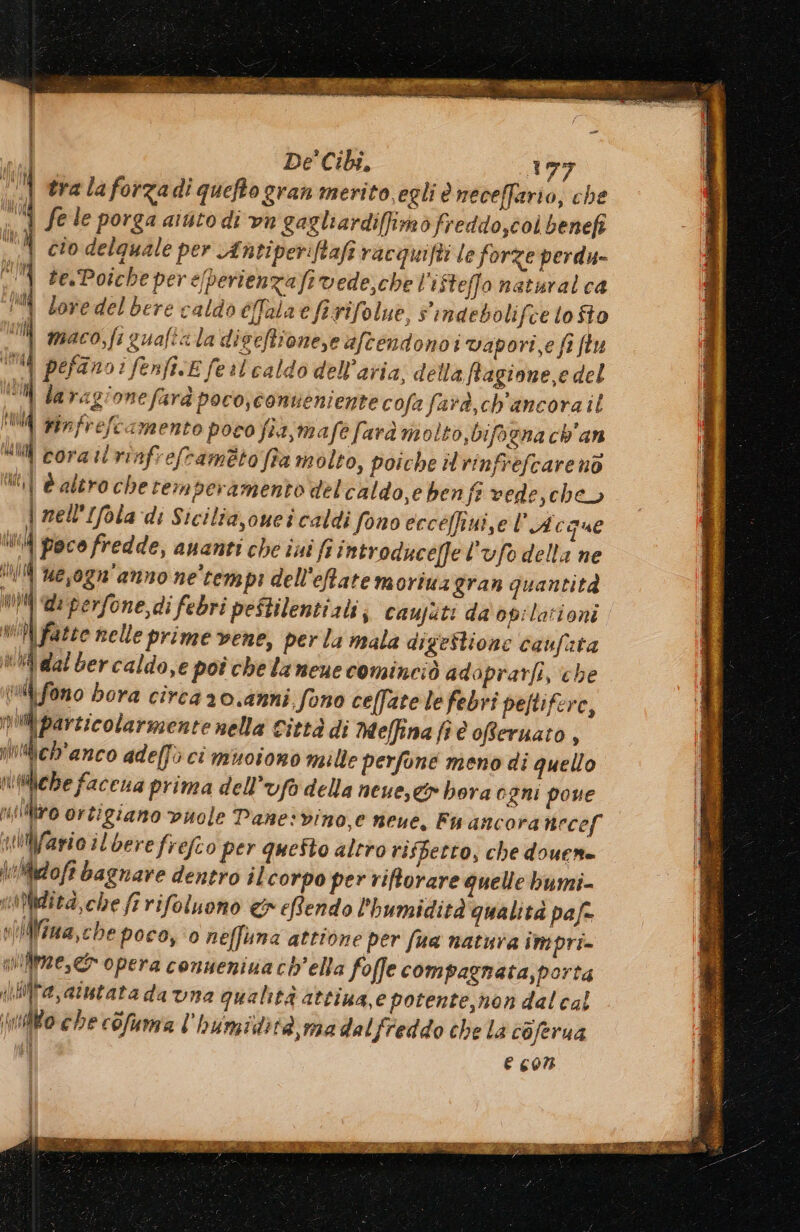 De' Cibi, 177
tra la forza di questo gran merito, egli è necessario, che
se le porga aiuto di vn gagliardissimo freddo, col benefi
cio delquale per Antiperistasi racquisti le forze perdu-
te. Poiche per esperienza si vede, che l'istesso natural ca
lore del bere caldo essala e si risolue, s'indebolisce lo sto
maco, si guasta la digestione, e ascendono i vapori, e si stu
pefano i sensi. E se il caldo dell'aria, della stagione, e del
la ragione sarà poco, conueniente cosa sarà, ch'ancora il
rinfrescamento poco sia, ma se sarà molto, bisogna ch'an
cora il rinfrescamēto sia molto, poiche il rinfrescare nō
è altro che temperamento del caldo, e ben si vede, che
nell'Isola di Sicilia, oue i caldi sono eccessiui, e l'Acque
poco fredde, auanti che iui si introducesse l'vso della ne
ue, ogn'anno ne' tempi dell'estate moriua gran quantità
di persone, di febri pestilentiali; causati da opilationi
fatte nelle prime vene, per la mala digestione causata
dal ber caldo, e poi che la neue cominciò adoprarsi, che
sono hora circa 20. anni. sono cessate le febri pestifere,
particolarmente nella Città di Messina si è osseruato,
ch'anco adesso ci muoiono mille persone meno di quello
che faceua prima dell'vso della neue, & hora ogni poue
ro ortigiano vuole Pane: vino, e neue. Fu ancora neces
sario il bere fresco per questo altro rispetto, che douen-
dosi bagnare dentro il corpo per ristorare quelle humi-
dità, che si risoluono & essendo l'humidità qualità pas-
siua, che poco, o nessuna attione per sua natura impri-
me, & opera conueniua ch'ella fosse compagnata, porta
ta, aiutata da vna qualità attiua, e potente, non dal cal
do che cōsuma l'humidità, ma dal freddo che la cōserua
e con